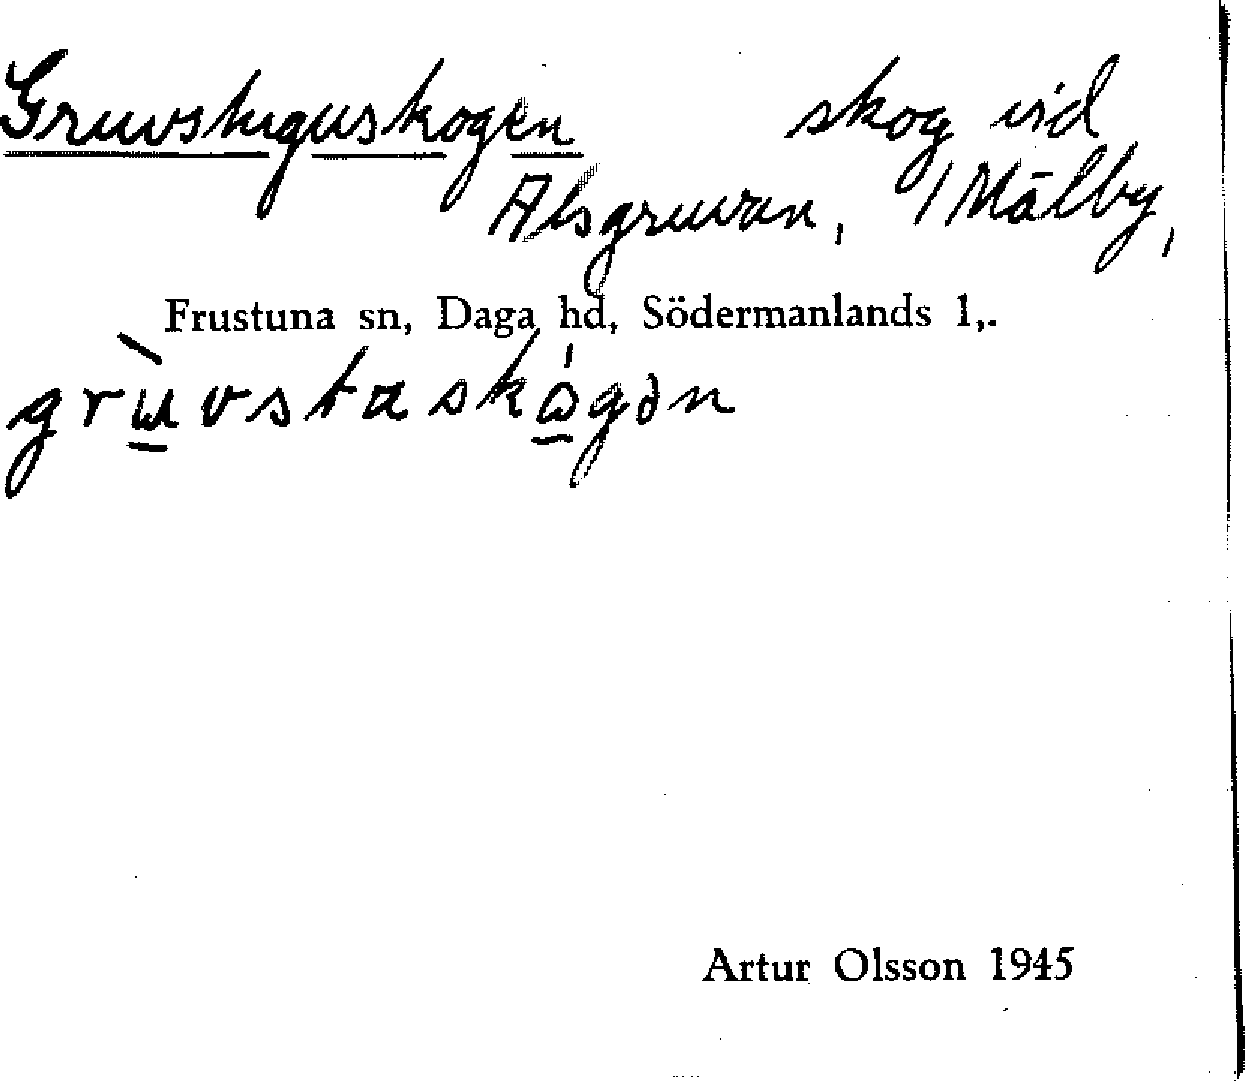 Gruvstuguskogen skog vid
Alsgruvan, /Mälby,
Frustuna sn, Daga hd, Södermanlands l,.
Artur Olsson 1945